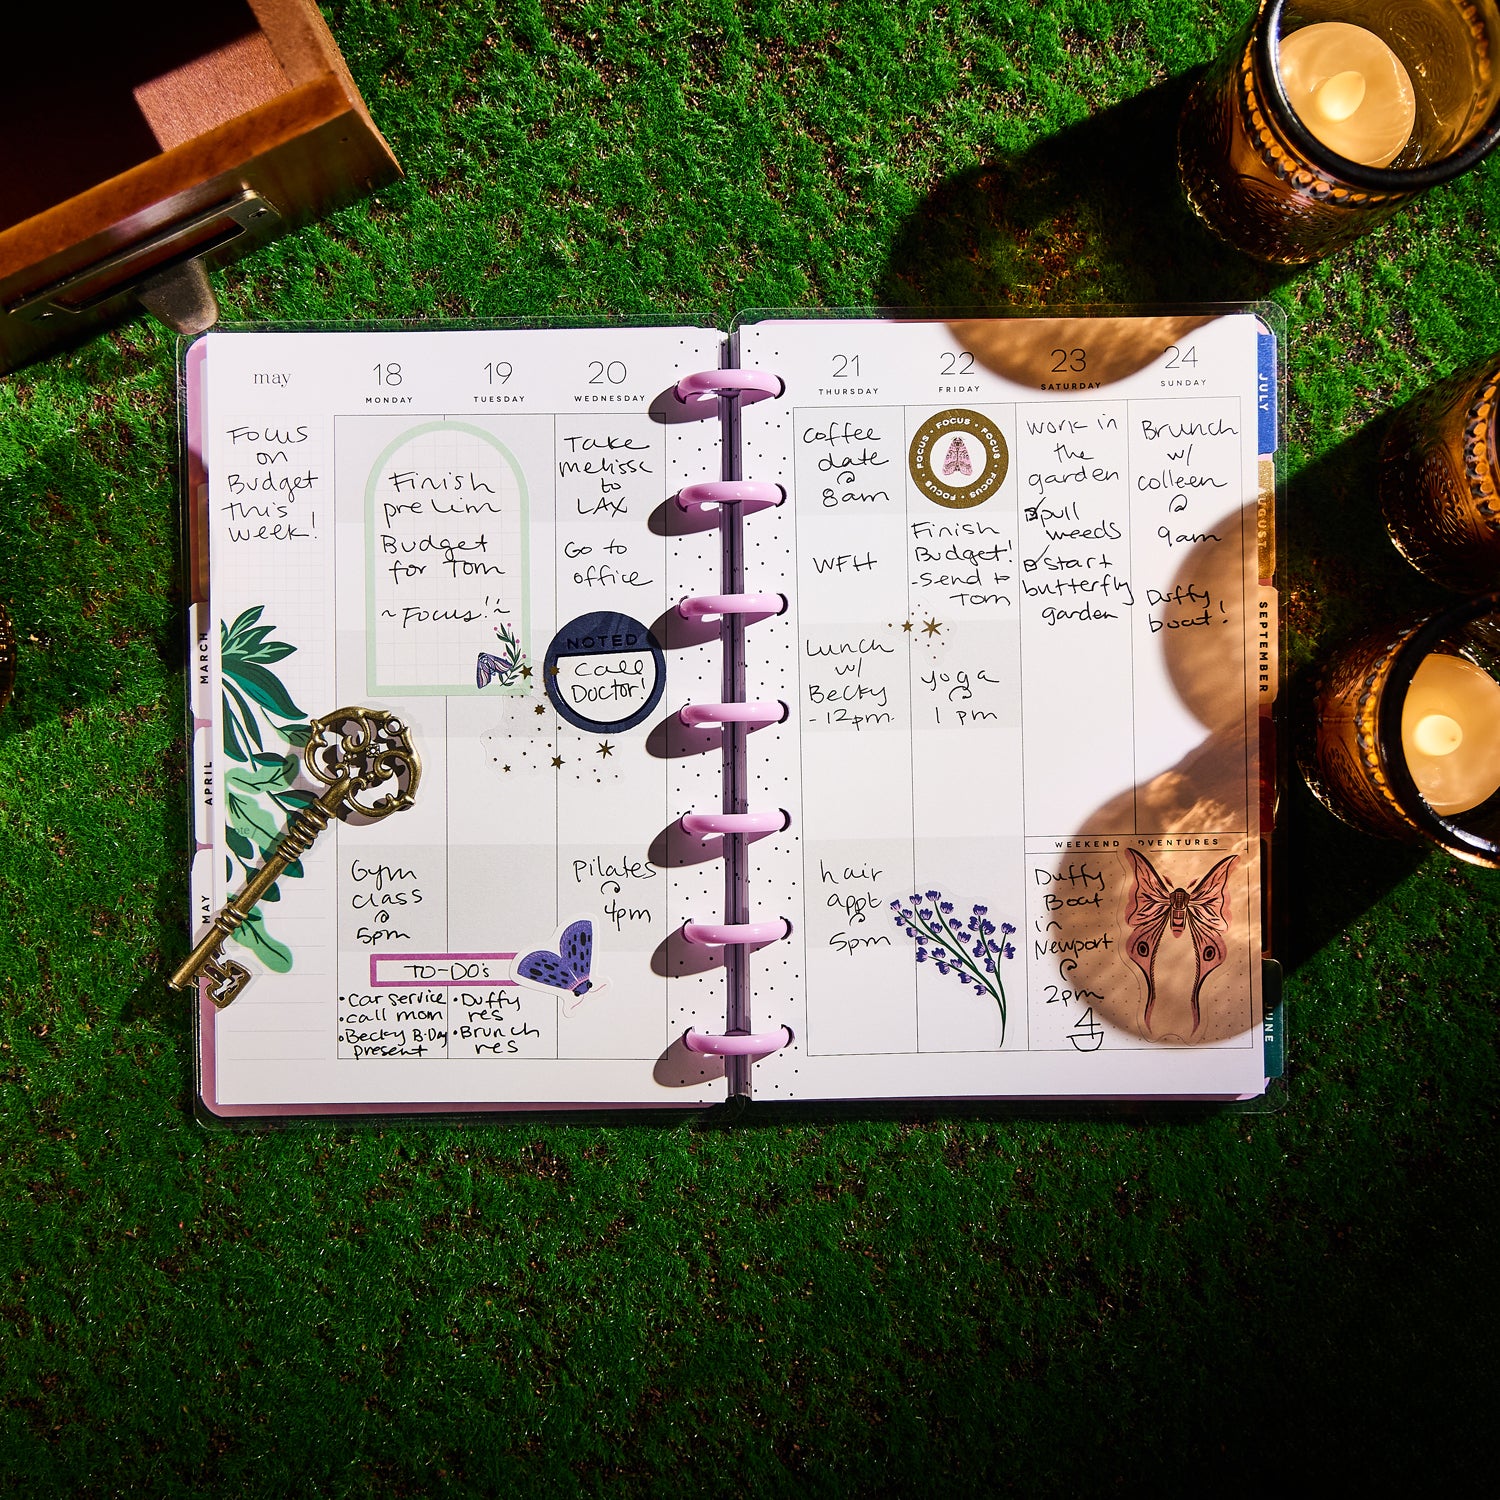 may
Focus
on
Budget
this
week!
note/
18
MONDAY
19
TUESDAY
Finish
prelim
Budget
for Tom
~Focus!~
Gym
class
@
5pm
TO-DO's
• Car service
• call mom
• Becky B-Day
present
• Duffy
res
• Brunch
res
20
WEDNESDAY
Take
melissa
to
LAX
Go to
office
NOTED
Call
Doctor!
Pilates
@
4pm
21
THURSDAY
Coffee
date
@
8am
WFH
Lunch
w/
Becky
-12pm
hair
appt
@
5pm
22
FRIDAY
FOCUS • FOCUS • FOCUS • FOCUS • FOCUS •
Finish
Budget!
-send to
Tom
yoga
@
1 pm
23
SATURDAY
work in
the
garden
pull
weeds
start
butterfly
garden
24
SUNDAY
Brunch
w/
colleen
@
9am
Duffy
boat!
WEEKEND ADVENTURES
Duffy
Boat
in
Newport
@
2pm
MARCH
APRIL
MAY
JULY
AUGUST
SEPTEMBER
JUNE